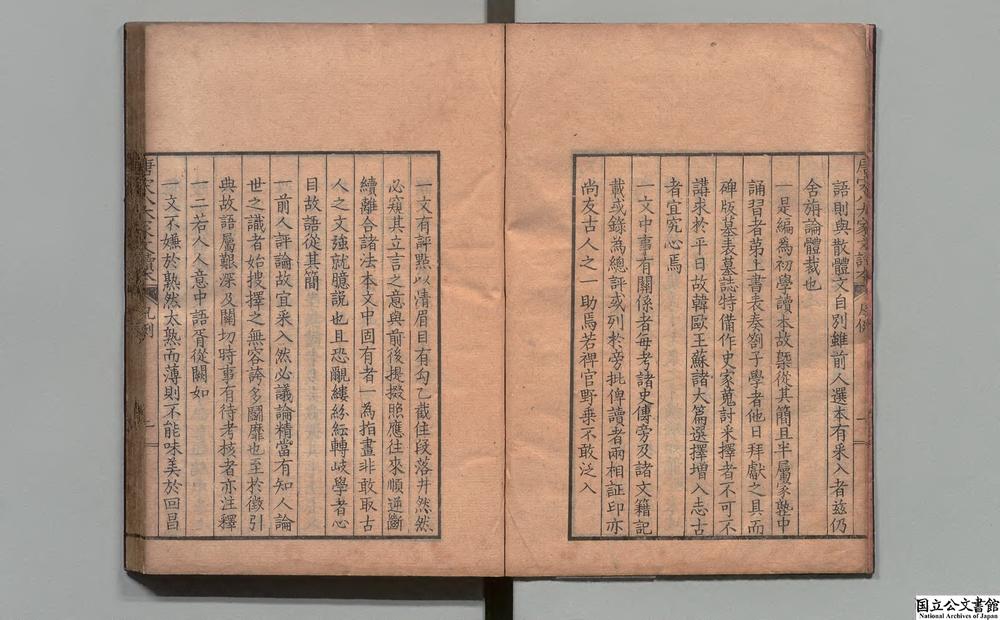 唐宋八大家文讀本
凡例
一
語則與散體文自別雖前人選本有采入者茲仍
舍旃論體裁也
一是編為初學讀本故槩從其簡且半屬家塾中
誦習者第上書表奏劄子學者他日拜獻之具而
碑版墓表墓誌特備作史家蒐討釆擇者不可不
講求於平日故韓歐王蘇諸大篇選擇增入志古
者宜究心焉
一文中事有關係者每考諸史傳旁及諸文籍記
載或錄為總評或列於旁批俾讀者兩相証印亦
尚友古人之一助焉若稗官野乘不敢泛入
一文有評點以清眉目有勾乙截住段落井然然
必窺其立言之意與前後提掇照應往來順逆斷
續離合諸法本文中固有者一為指畫非敢取古
人之文強就臆說也且恐覼縷紛紜轉岐學者心
目故語從其簡
一前人評論故宜采入然必議論精當有知人論
世之識者始搜擇之無容誇多鬭靡也至於徵引
典故語屬艱深及關切時事有待考核者亦注釋
一二若人人意中語胥從闕如
一文不嫌於熟然太熟而薄則不能味美於回昌
唐宋八大家文讀本
凡例
二
国立公文書館
National Archives of Japan